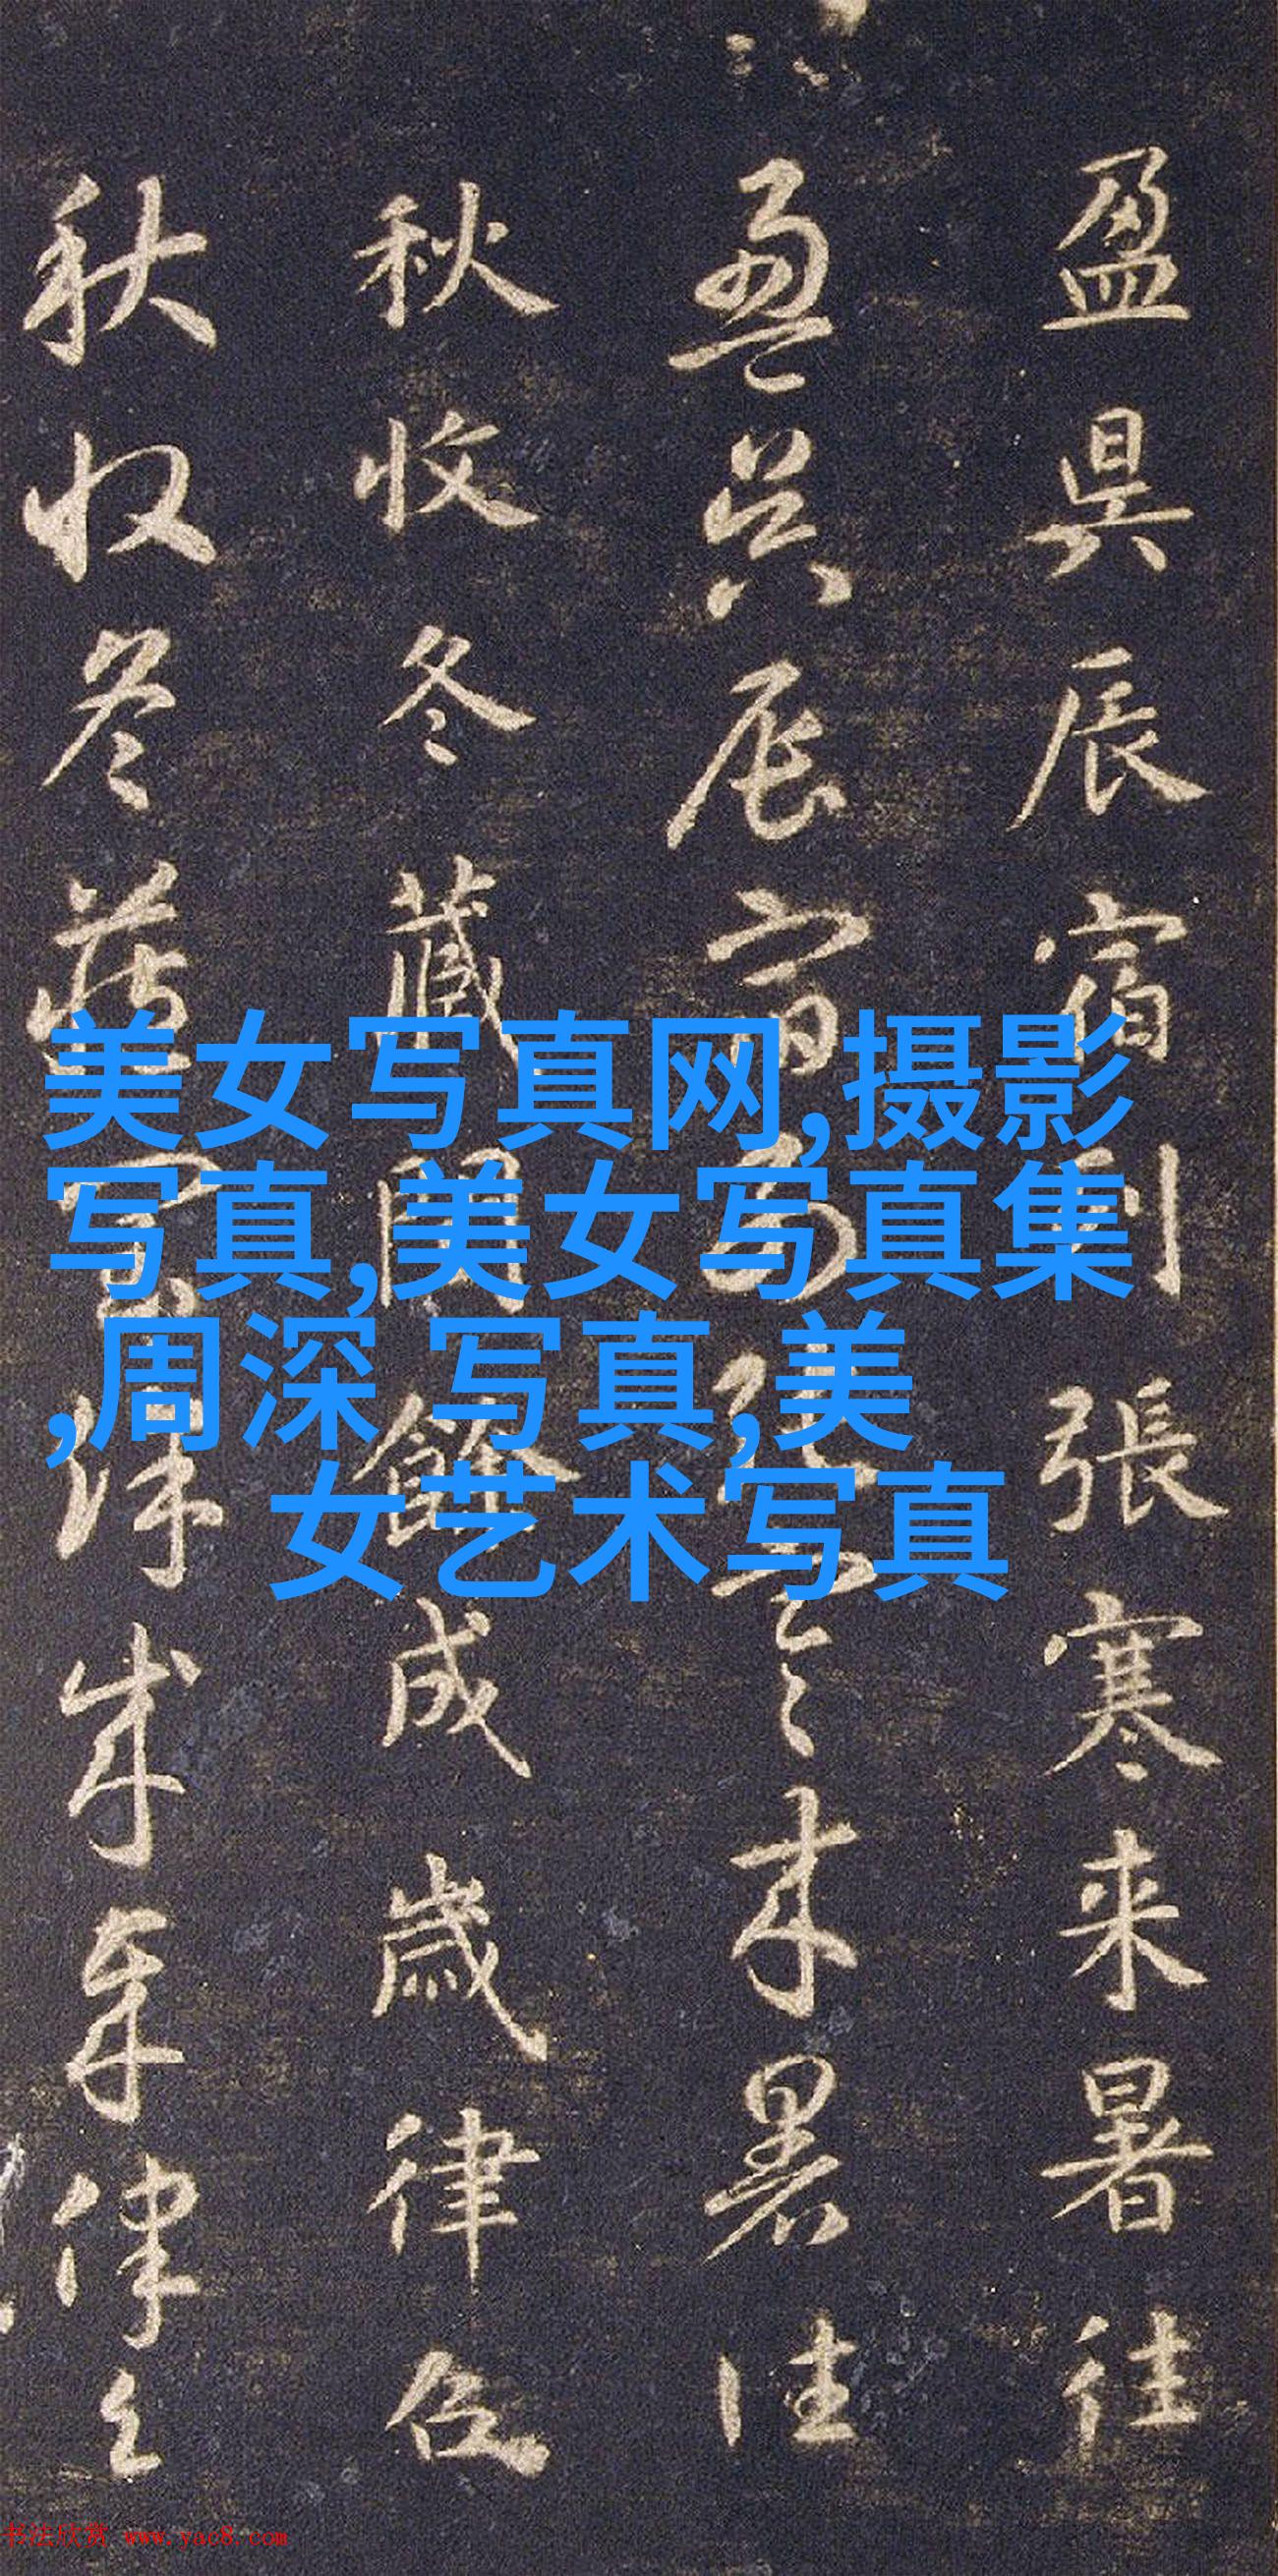 盈昃辰宿列張寒来暑往
盈昃辰宿列張寒来暑往
秋收冬藏閏餘成歲律
秋收冬藏閏餘成歲律
美女写真网,摄影
写真,美女写真集
,周深 写真,美
女艺术写真
书法欣赏 www.yac8.com